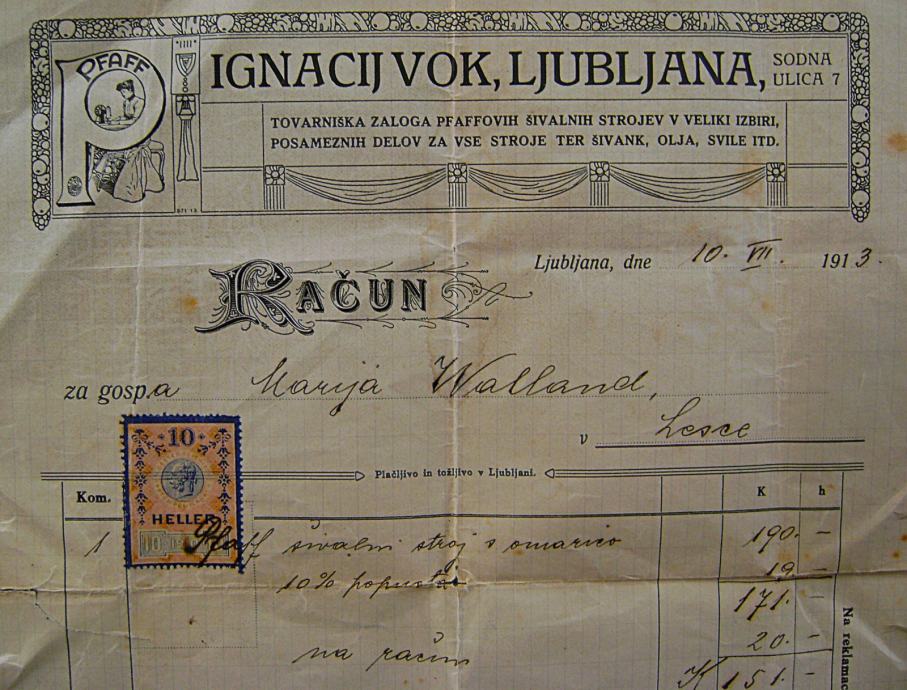 PFAFF
IGNACIJ VOK, LJUBLJANA, SODNA ULICA 7
TOVARNIŠKA ZALOGA PFAFFOVIH ŠIVALNIH STROJEV V VELIKI IZBIRI,
POSAMEZNIH DELOV ZA VSE STROJE TER ŠIVANK, OLJA, SVILE ITD.
Ljubljana, dne 10. VII. 1913.
RAČUN
za gosp.a Marija Walland,
v Lesce
10
HELLER
Plačljivo in tožljivo v Ljubljani.
Kom. K h
1 Pfaff šivalni stroj s omarico 190.-
10% popusta 19.-
171.-
na račun 20.-
K 151.-
Na reklamac